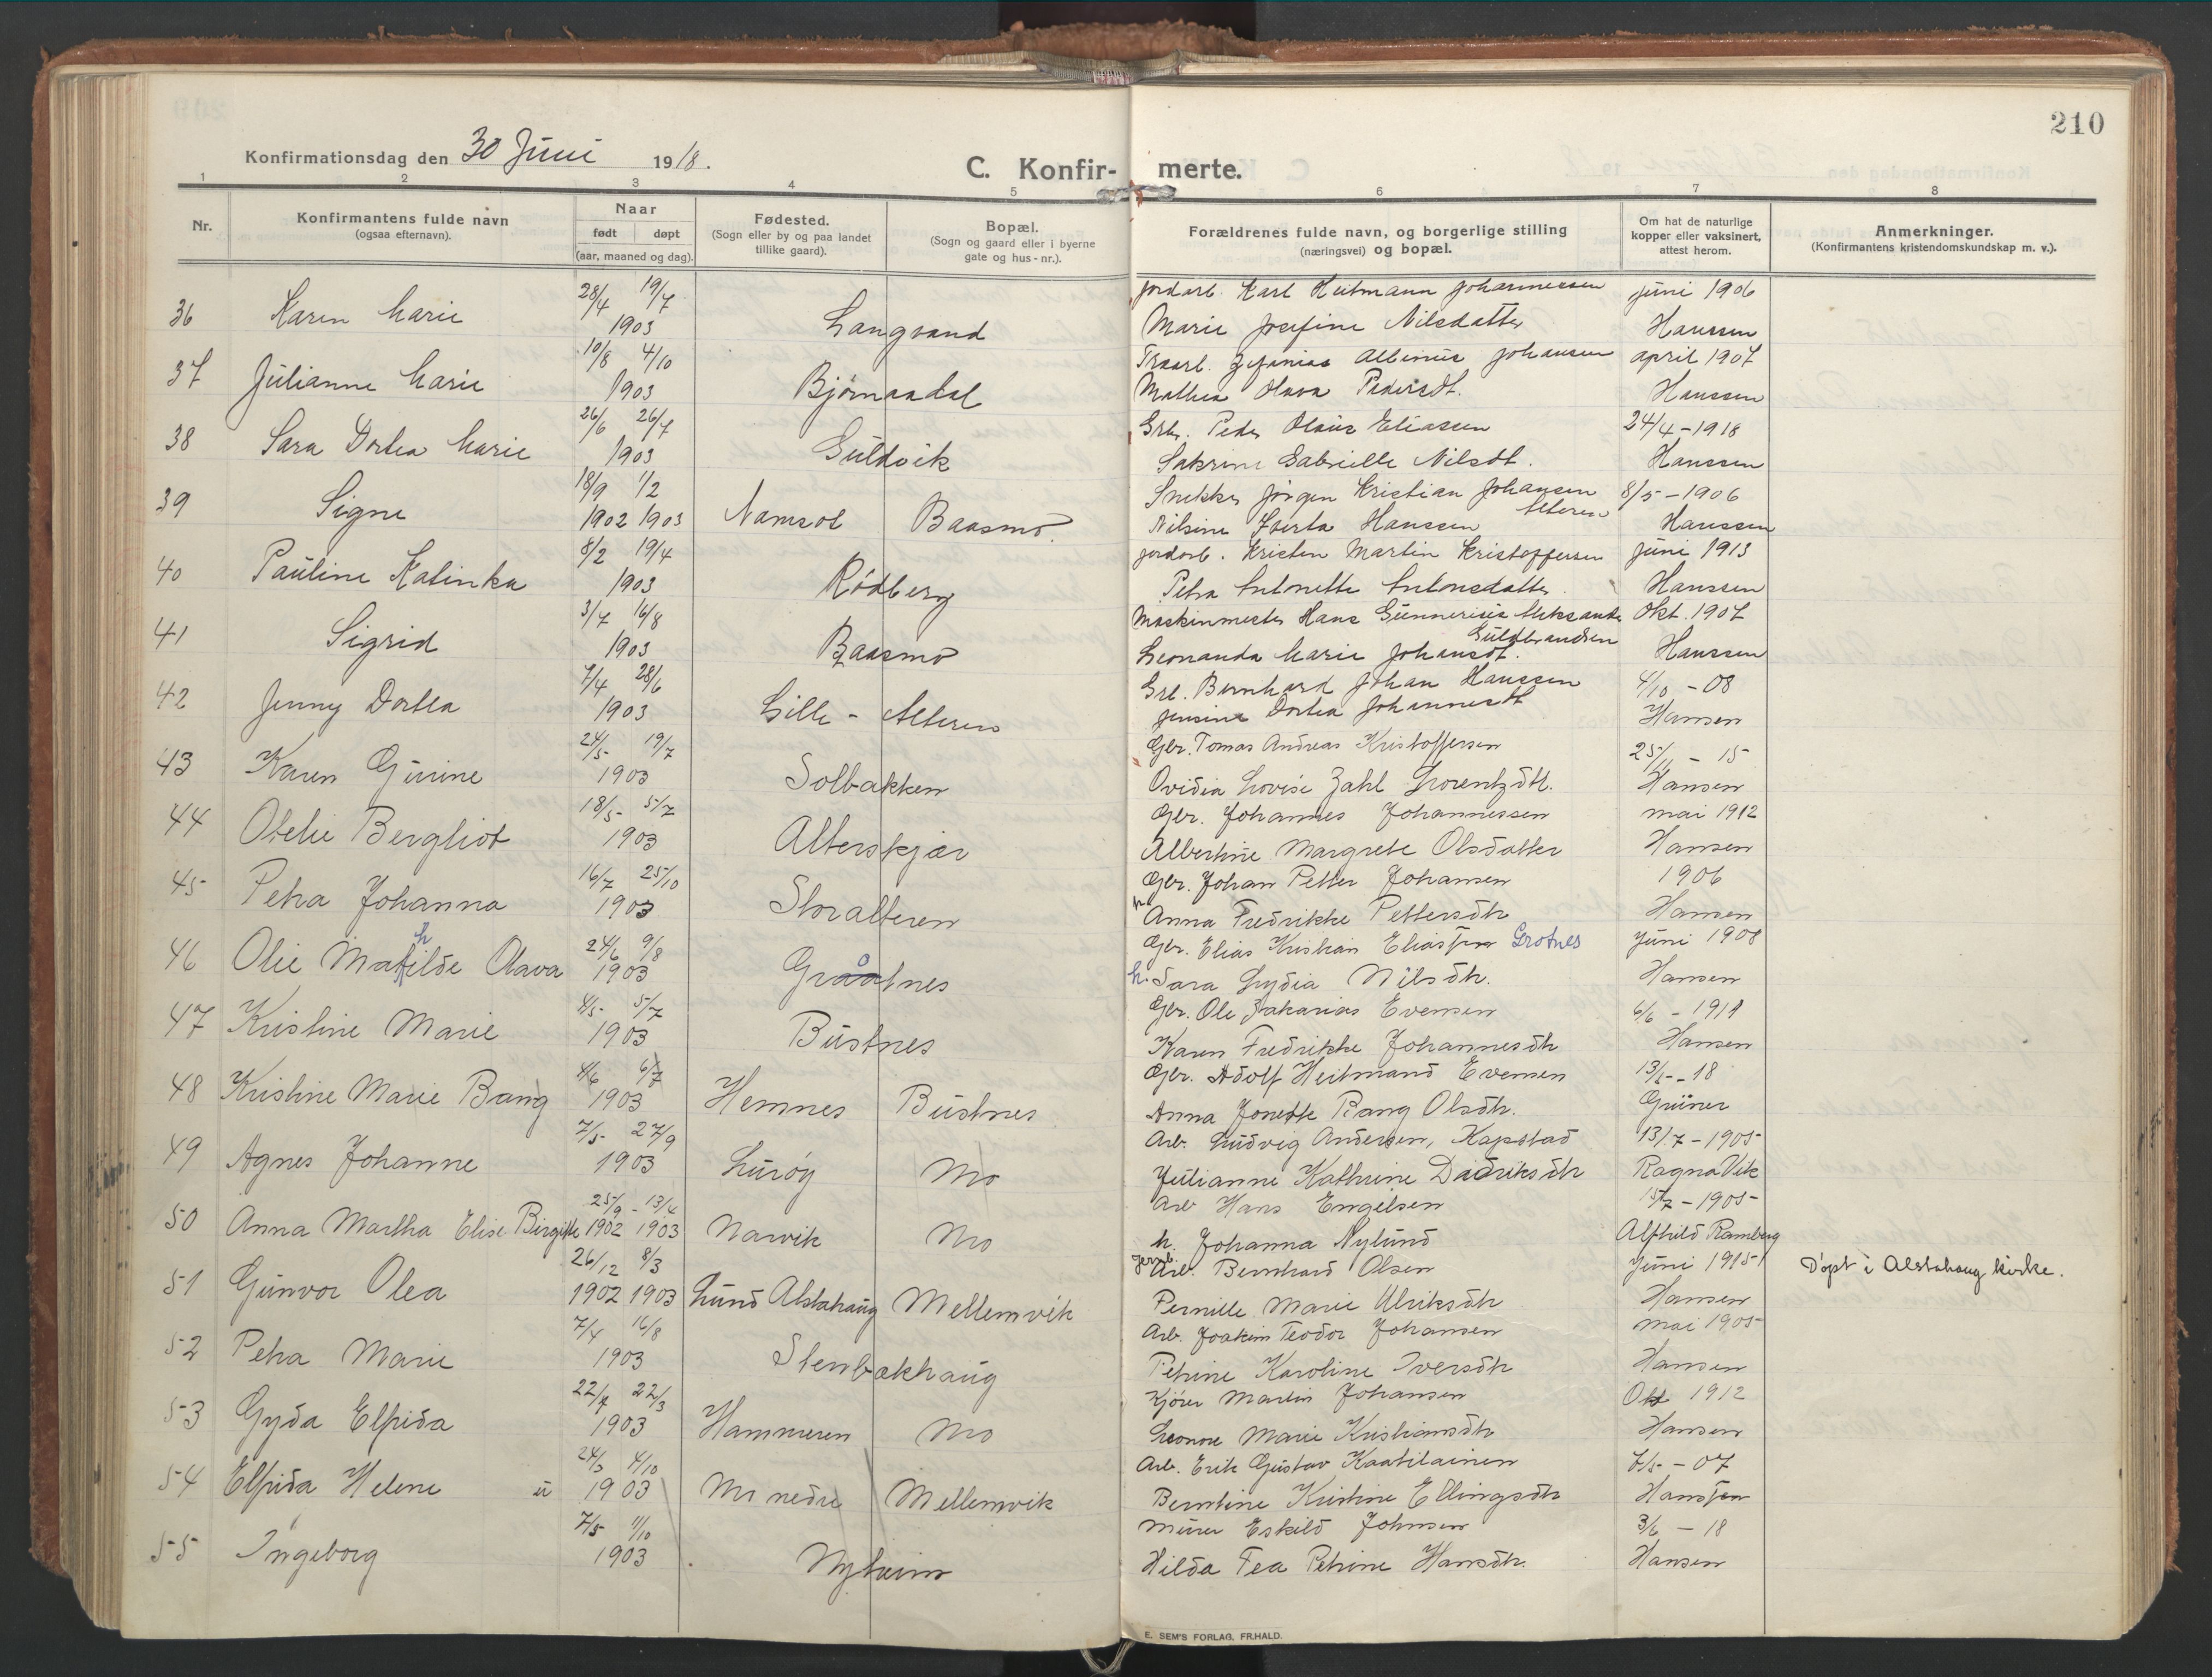 210
Konfirmationsdag den 30 Juni 1918.
C. Konfirmerte.
1 2 3 4 5 6 7 8
Nr.
Konfirmantens fulde navn
(ogsaa efternavn).
Naar
født døpt
(aar, maaned og dag).
Fødested.
(Sogn eller by og paa landet
tillike gaard).
Bopæl.
(Sogn og gaard eller i byerne
gate og hus-nr.).
Forældrenes fulde navn, og borgerlige stilling
(næringsvei) og bopæl.
Om hat de naturlige
kopper eller vaksinert,
attest herom.
Anmerkninger.
(Konfirmantens kristendomskundskap m. v.).
36 Karen Marie 28/4 19/7 1903 Langsand
Jordarb. Karl Heitmann Johannessen juni 1906
Marie Josefine Nilsdatter Hanssen
37 Julianne Marie 10/8 4/10 1903 Bjørnaadal
Zefanias Albinus Johansen april 1907
Mathea Hava Pedersdt. Hanssen
38 Sara Dortea Marie 26/6 26/7 1903 Guldvik
Grb. Peder Olaus Eliassen 24/4 - 1918
Sakrine Gabrielle Nilsdt. Hanssen
39 Signe 18/9 1/2 1902 1903 Namsos Baasmo.
Snekker Jørgen Kristian Johansen 8/5 - 1906
Alteren
Nilsine Hanssen Hanssen
40 Pauline Katinka 8/2 19/4 1903 Rødberg
Jordarb. Kristen Martin Kristoffersen juni 1913
Petra Antonette Antonsdatter Hanssen
41 Sigrid 3/7 16/8 1903 Baasmo
Maskinmester Hans Gunnerius Aleksander Okt. 1907
Guldbrandsen
Leonanda Marie Johansdt. Hanssen
42 Jenny Dortea 7/4 28/6 1903 Lille - Alteren
Grb. Bernhard Johan Hanssen 4/10 - 08
Jensine Dortea Johannesdt Hansen
43 Karen Gurine 24/5 19/7 1903 Solbakken
Gbr. Tomas Andreas Kristoffersen 25/11 - 15
Ovidia Lovise Zahl Lorentzdtt. Hansen
44 Otelie Bergliot 18/5 5/7 1903 Alterskjær
Gbr. Johannes Johannessen mai 1912
Albertine Margrete Olsdatter Hansen
45 Petra Johanna 16/7 25/10 1903 Storalteren
Gbr. Johan Petter Johansen 1906
h Anna Fredrikke Pettersdtr Hansen
46 Olie Mathilde Olava 24/6 9/8 1903 Gråtnes
Gbr. Elias Kristian Eliassen Grotnes juni 1908
h. Sara Lydia Nilsdtr. Hansen
47 Kristine Marie 4/5 5/7 1903 Bustnes
Gbr. Ole Zakarias Evensen 6/6 - 1911
Karen Fredrikke Johannesdtr Hansen
48 Kristine Marie Bang 4/6 6/7 1903 Hemnes Bustnes
Gbr. Adolf Heitmand Evensen 13/5 - 18
Anna Jonette Bang Olsdtr. Grüner
49 Agnes Johanne 7/5 27/9 1903 Lurøy Mo
Arb. Ludvig Andersen, Kapstad 13/7 - 1905
Julianne Kathrine Didriksdtr Ragna Vik
50 Anna Martha Elise Birgitte 25/9 - 13/4 1902 1903 Narvik Mo
Arb Hans Engelsen 15/7 - 1905
h. Johanna Nylund Alfhild Ramberg
51 Gunvor Olea 26/12 8/3 1902 1903 Lund Alstahaug Mellemvik
Jernb. Arb. Bernhard Olsen juni 1915 Døpt i Alstahaug kirke.
Pernille Marie Ulriksdtr Hansen
52 Petra Marie 7/4 16/8 1903 Stenbakhaug
Arb. Joakim Teodor Johansen mai 1905
Petrine Karoline Iversdtr Hansen
53 Gyda Elfrida 22/7 22/3 1903 Hammeren Mo
Kjører Martin Johansen Okt 1912
Leonore Marie Kristiansdtr Hansen
54 Elfrida Helene u 24/3 4/10 1903 Mo nedre Mellemvik
Arb. Erik Gustav Kaatilainen 7/5 - 07
Berntine Kristine Ellingsdtr Hanssen
55 Ingeborg 7/5 11/10 1903 Nyheim
Murer Eskild Johnsen 3/6 - 18
Hilda Tea Petrine Hansdtr. Hansen
E. SEM'S FORLAG, FR.HALD.